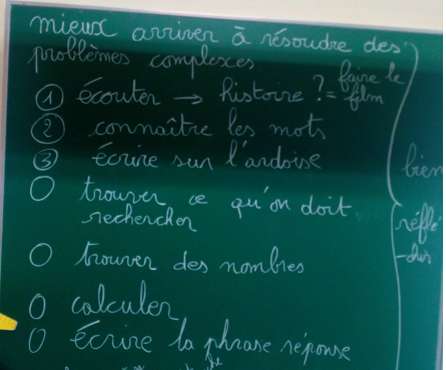 mieux arriver à résoudre des
problèmes complexes
① écouter → histoire ? = faire le film
② connaître les mots
③ écrire sur l'ardoise
bien
trouver ce qu'on doit
rechercher
réflé
-chir
trouver des nombres
calculer
écrire la phrase réponse